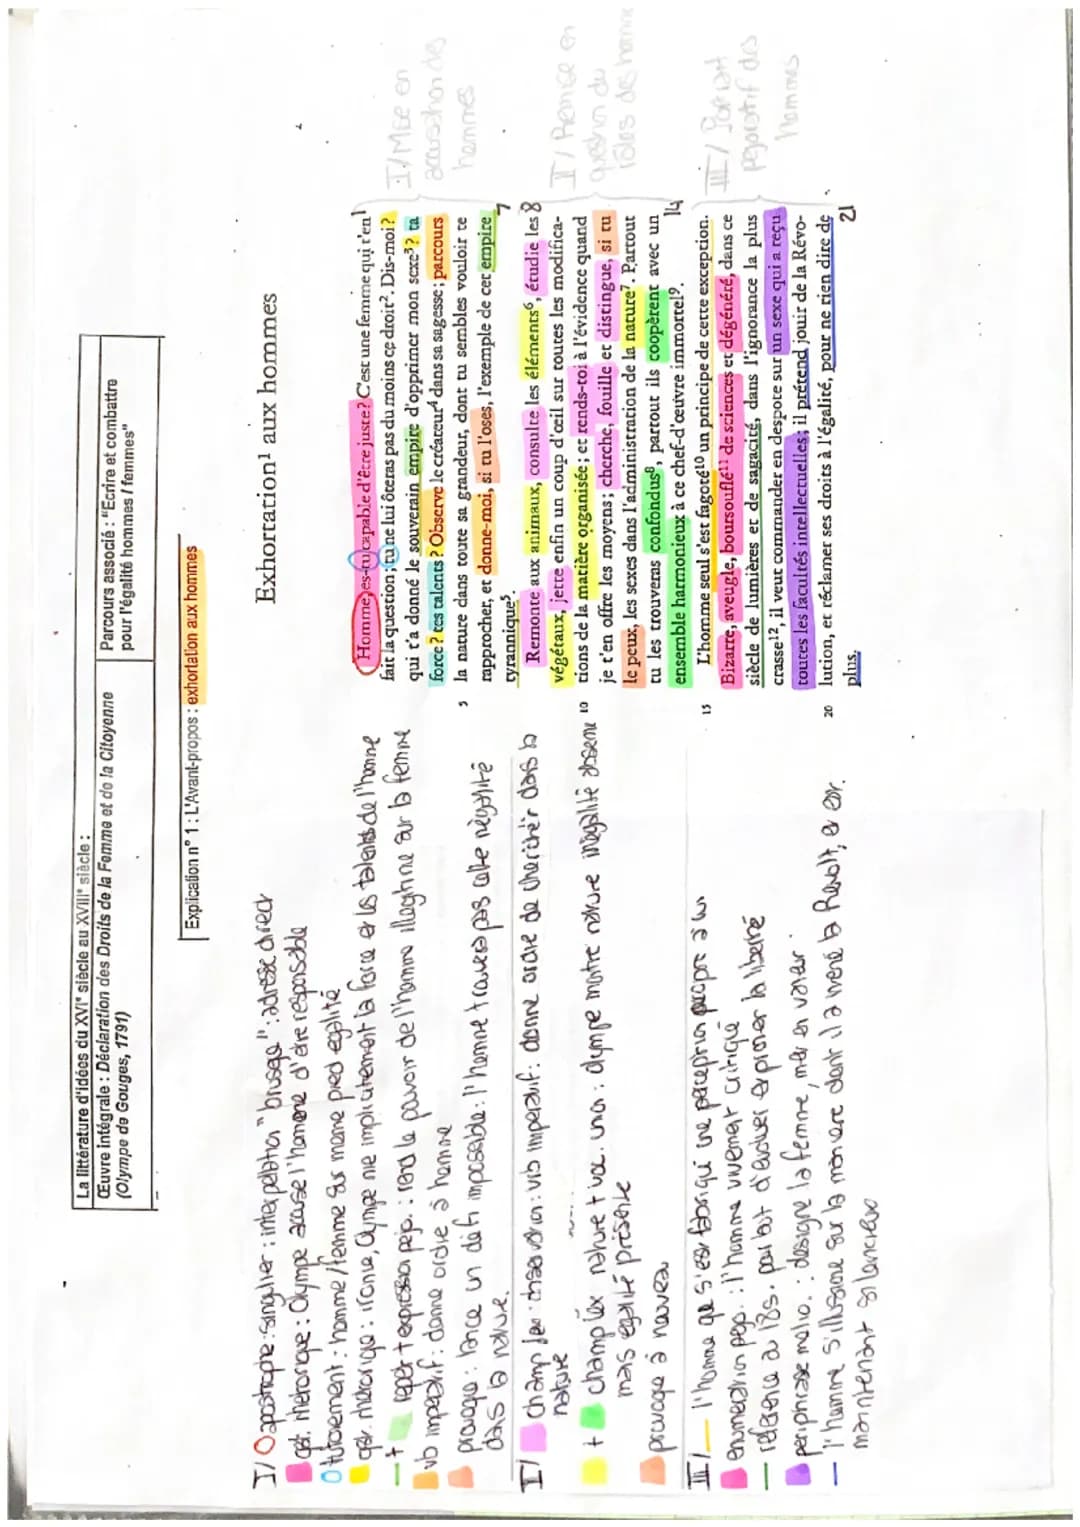 La littérature d'idées du XVIe siècle au XVIIIe siècle :
Œuvre intégrale : Déclaration des Droits de la Femme et de la Citoyenne
(Olympe de Gouges, 1791)
Parcours associé : "Ecrire et combattre
pour l'égalité hommes / femmes"
Explication n° 1 : L'Avant-propos : exhortation aux hommes
Exhortation¹ aux hommes
Homme, es-tu capable d'être juste ? C'est une femme qui t'en 1
fait la question ; tu ne lui ôteras pas du moins ce droit². Dis-moi ?
qui t'a donné le souverain empire d'opprimer mon sexe³ ? ta
force ? tes talents ? Observe le créateur⁴ dans sa sagesse ; parcours
5 la nature dans toute sa grandeur, dont tu sembles vouloir te
rapprocher, et donne-moi, si tu l'oses, l'exemple de cet empire 7
tyrannique⁵.
Remonte aux animaux, consulte les éléments⁶, étudie les 8
végétaux, jette enfin un coup d'œil sur toutes les modifica-
10 tions de la matière organisée ; et rends-toi à l'évidence quand
je t'en offre les moyens ; cherche, fouille et distingue, si tu
le peux, les sexes dans l'administration de la nature⁷. Partout
tu les trouveras confondus⁸, partout ils coopèrent avec un
ensemble harmonieux à ce chef-d'œuvre immortel⁹. 14
15 L'homme seul s'est fagoté¹⁰ un principe de cette exception.
Bizarre, aveugle, boursouflé¹¹ de sciences et dégénéré, dans ce
siècle de lumières et de sagacité, dans l'ignorance la plus
crasse¹², il veut commander en despote sur un sexe qui a reçu
toutes les facultés intellectuelles ; il prétend jouir de la Révo-
20 lution, et réclamer ses droits à l'égalité, pour ne rien dire de
plus. 21
I/ Mise en
accusation des
hommes
II/ Remise en
question du
rôles des homme
III/ Portrait
pejoratif des
hommes
I/ apostrophe : singulier : interpellation "brusque" : adresse direct
qst. rhétorique : Olympe accuse l'homme d'être responsable
tutoiement : homme/femme sur meme pied egalité
qst. rhétorique : ironie, Olympe nie implicitement la force et les talents de l'homme
+ repet + expression pejo. : rend le pouvoir de l'homme illegitime sur la femme
vb imperatif : donne ordre à homme
provoque : lance un défi impossible : l'homme trouvera pas cette négalité
dans la nature.
II/ champ lex. observation : vb imperatif : donne ordre de chercher dans la
nature
+ champ lex nature + voc. union : olympe montre nature inégalité absente
mais egalité présente
provoque à nouveau
III/ l'homme qui s'est fabriqué une perception propre à lui
enumeration pejo. : l'homme vivement critiqué
référence au 18s. partout d'evoluer exprimer la liberté
periphrase melio. : designe la femme, mise en valeur
l'homme s'illusione sur la maniere dont il a mené la Revolt, et est
maintenant silencieux